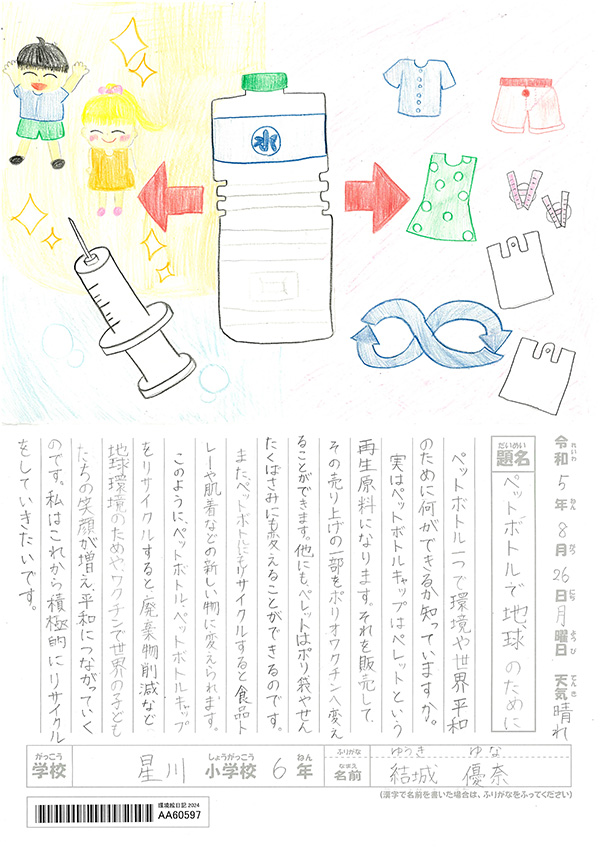 水
令和5年8月26日月曜日 天気晴れ
れいわ ねん がつ にち ようび てんき
だいめい
題名
ペットボトルで地球のために
ペットボトル一つで環境や世界平和
のために何ができるか知っていますか。
実はペットボトルキャップはペレットという
再生原料になります。それを販売して、
その売り上げの一部をポリオワクチンへ変え
ることができます。他にもペレットはポリ袋やせん
たくばさみにも変えることができるのです。
また、ペットボトルにもリサイクルすると食品ト
レーや肌着などの新しい物に変えられます。
このように、ペットボトル、ペットボトルキャップ
をリサイクルすると、廃棄物削減など
地球環境のためや、ワクチンで世界の子ども
たちの笑顔が増え、平和につながっていく
のです。私はこれから積極的にリサイクル
をしていきたいです。
がっこう しょうがっこう ねん
学校 星川 小学校 6年
ふりがな ゆうき ゆな
なまえ
名前 結城 優奈
(漢字で名前を書いた場合は、ふりがなをふってください)
環境絵日記 2024
AA60597